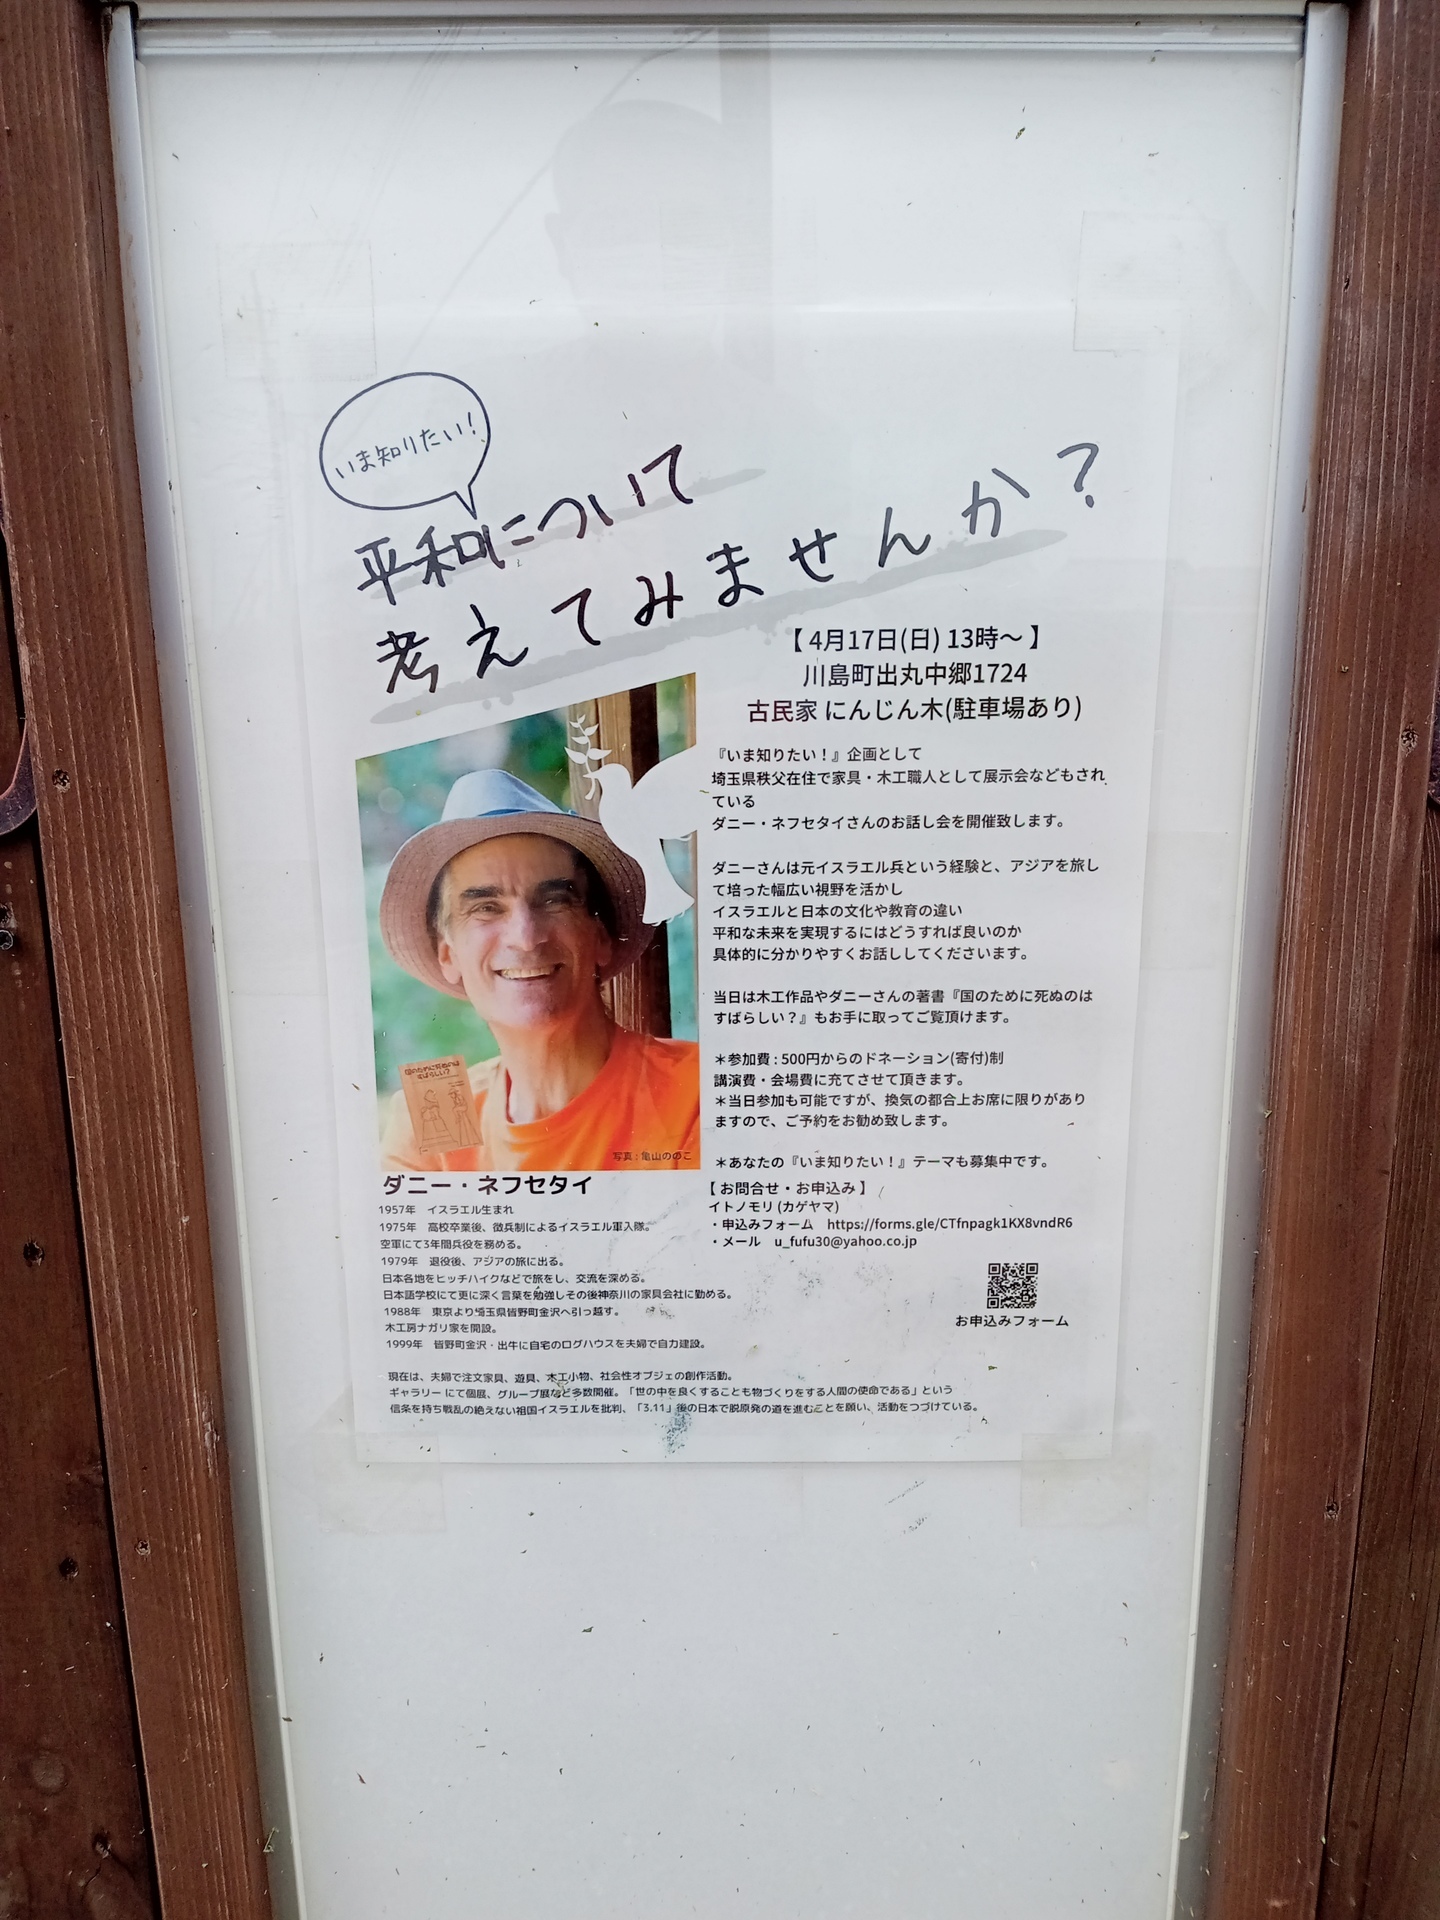 いま知りたい!
平和について
考えてみませんか?
【 4月17日(日) 13時～ 】
川島町出丸中郷1724
古民家 にんじん木(駐車場あり)
『いま知りたい！』企画として
埼玉県秩父在住で家具・木工職人として展示会などもされ
ている
ダニー・ネフセタイさんのお話し会を開催致します。
ダニーさんは元イスラエル兵という経験と、アジアを旅し
て培った幅広い視野を活かし
イスラエルと日本の文化や教育の違い
平和な未来を実現するにはどうすれば良いのか
具体的に分かりやすくお話ししてくださいます。
当日は木工作品やダニーさんの著書『国のために死ぬのは
すばらしい？』もお手に取ってご覧頂けます。
＊参加費 : 500円からのドネーション(寄付)制
講演費・会場費に充てさせて頂きます。
＊当日参加も可能ですが、換気の都合上お席に限りがあり
ますので、ご予約をお勧め致します。
＊あなたの『いま知りたい！』テーマも募集中です。
【 お問合せ・お申込み 】
イトノモリ (カゲヤマ)
・申込みフォーム https://forms.gle/CTfnpagk1KX8vndR6
・メール u_fufu30@yahoo.co.jp
お申込みフォーム
国のために死ぬのは
すばらしい?
写真 : 亀山ののこ
ダニー・ネフセタイ
1957年 イスラエル生まれ
1975年 高校卒業後、徴兵制によるイスラエル軍入隊。
空軍にて3年間兵役を務める。
1979年 退役後、アジアの旅に出る。
日本各地をヒッチハイクなどで旅をし、交流を深める。
日本語学校にて更に深く言葉を勉強しその後神奈川の家具会社に勤める。
1988年 東京より埼玉県皆野町金沢へ引っ越す。
木工房ナガリ家を開設。
1999年 皆野町金沢・出牛に自宅のログハウスを夫婦で自力建設。
現在は、夫婦で注文家具、遊具、木工小物、社会性オブジェの創作活動。
ギャラリー にて個展、グループ展など多数開催。「世の中を良くすることも物づくりをする人間の使命である」という
信条を持ち戦乱の絶えない祖国イスラエルを批判、「3.11」後の日本で脱原発の道を進むことを願い、活動をつづけている。